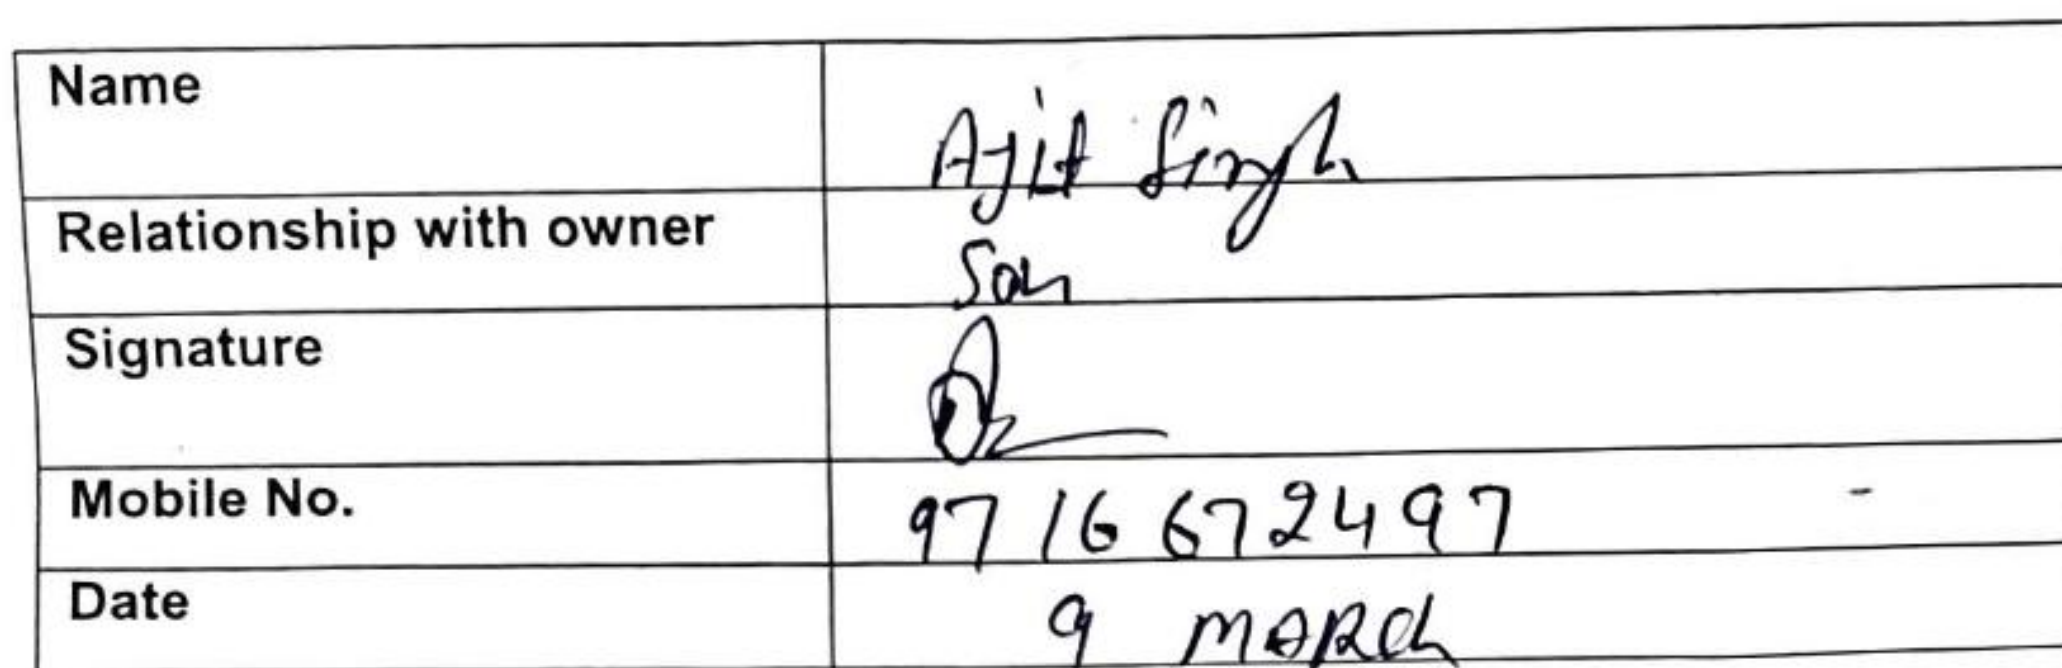 Name Ajit Singh
Relationship with owner Son
Signature
Mobile No. 9716672497
Date 9 MARCh